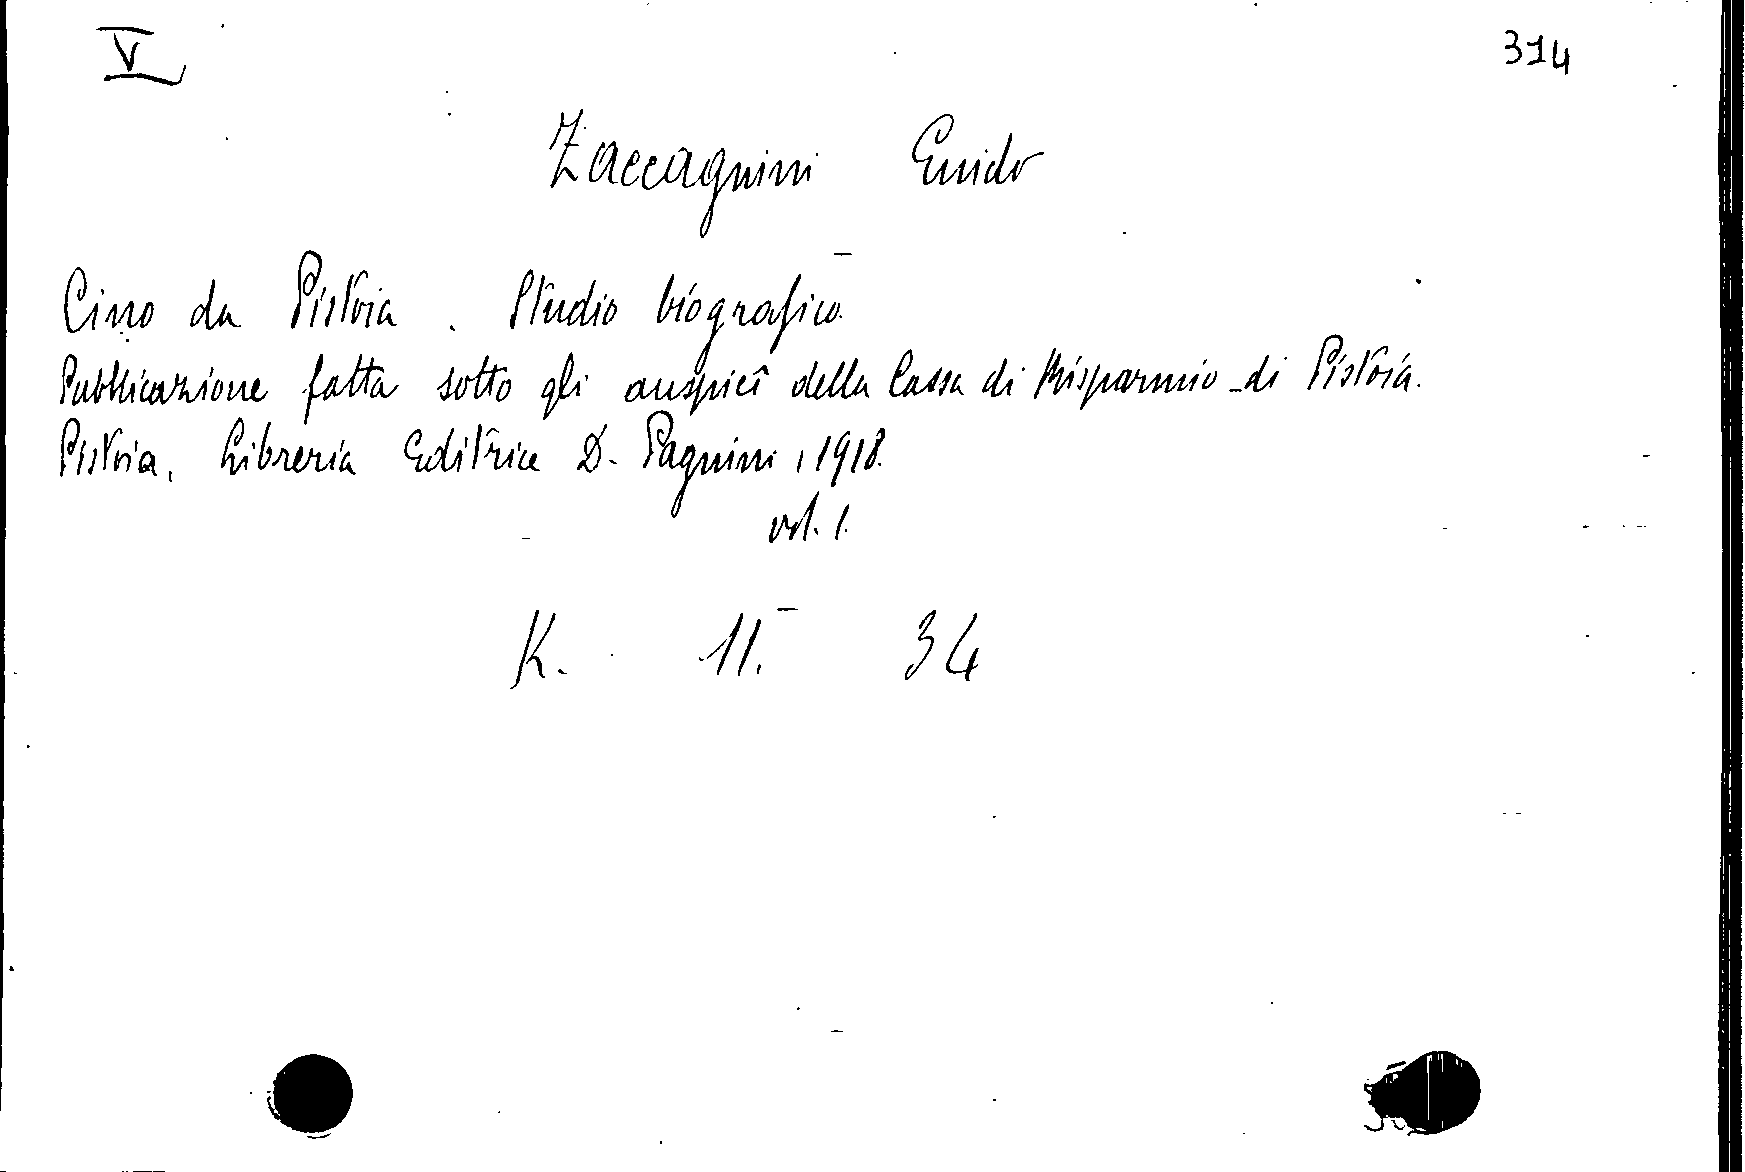 V
314
Zaccagnini Guido
Cino da Pistoia. Studio biografico.
Pubblicazione fatta sotto gli auspicî della Cassa di Risparmio di Pistoia.
Pistoia, Libreria Editrice D. Pagnini, 1918.
vol. 1.
K. 11. 34